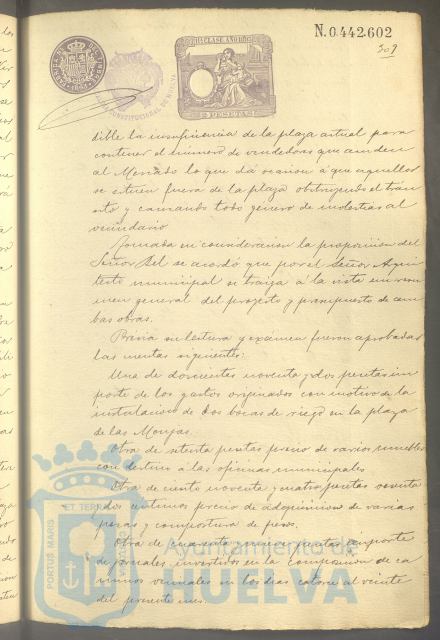 N.0.442.602
309
dible la insuficiencia de la plaza actual para
contener el número de vendedores que acuden
al Mercado lo que dá ocasion á que aquellos
se situen fuera de la plaza obstruyendo el tran
sito y causando todo genero de molestias al
vecindario
Tomada en consideracion la proposicion del
Señor del se acordó que por el Señor Arqui
tecto municipal se traiga á la vista un resu
men general del proyecto y presupuesto de am
bas obras.
Previa su lectura y exámen fueron aprobadas
las cuentas siguientes:
Una de doscientas noventa y dos pesetas im
porte de los gastos originados con motivo de la
instalacion de dos bocas de riego en la plaza
de las Monjas.
Otra de setenta pesetas precio de varios muebles
con destino á las oficinas municipales
Otra de ciento noventa y cuatro pesetas
dos centimos precio de adquisicion de varias
pesas y compostura de pesos.
Otra de cuarenta y nueve pesetas importe
de jornales invertidos en la composicion de ca
minos vecinales en los dias catorce al veinte
del presente mes.
PORTUS MARIS
ET TERRAE
Ayuntamiento de
HUELVA